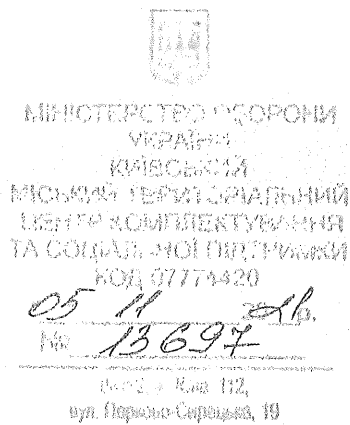 МІНІСТЕРСТВО ОБОРОНИ
УКРАЇНИ
КИЇВСЬКИЙ
МІСЬКИЙ ТЕРИТОРІАЛЬНИЙ
ЦЕНТР КОМПЛЕКТУВАННЯ
ТА СОЦІАЛЬНОЇ ПІДТРИМКИ
КОД 07774420
05 11
№ 13697
112,
вул. Парково-Сирецька, 19